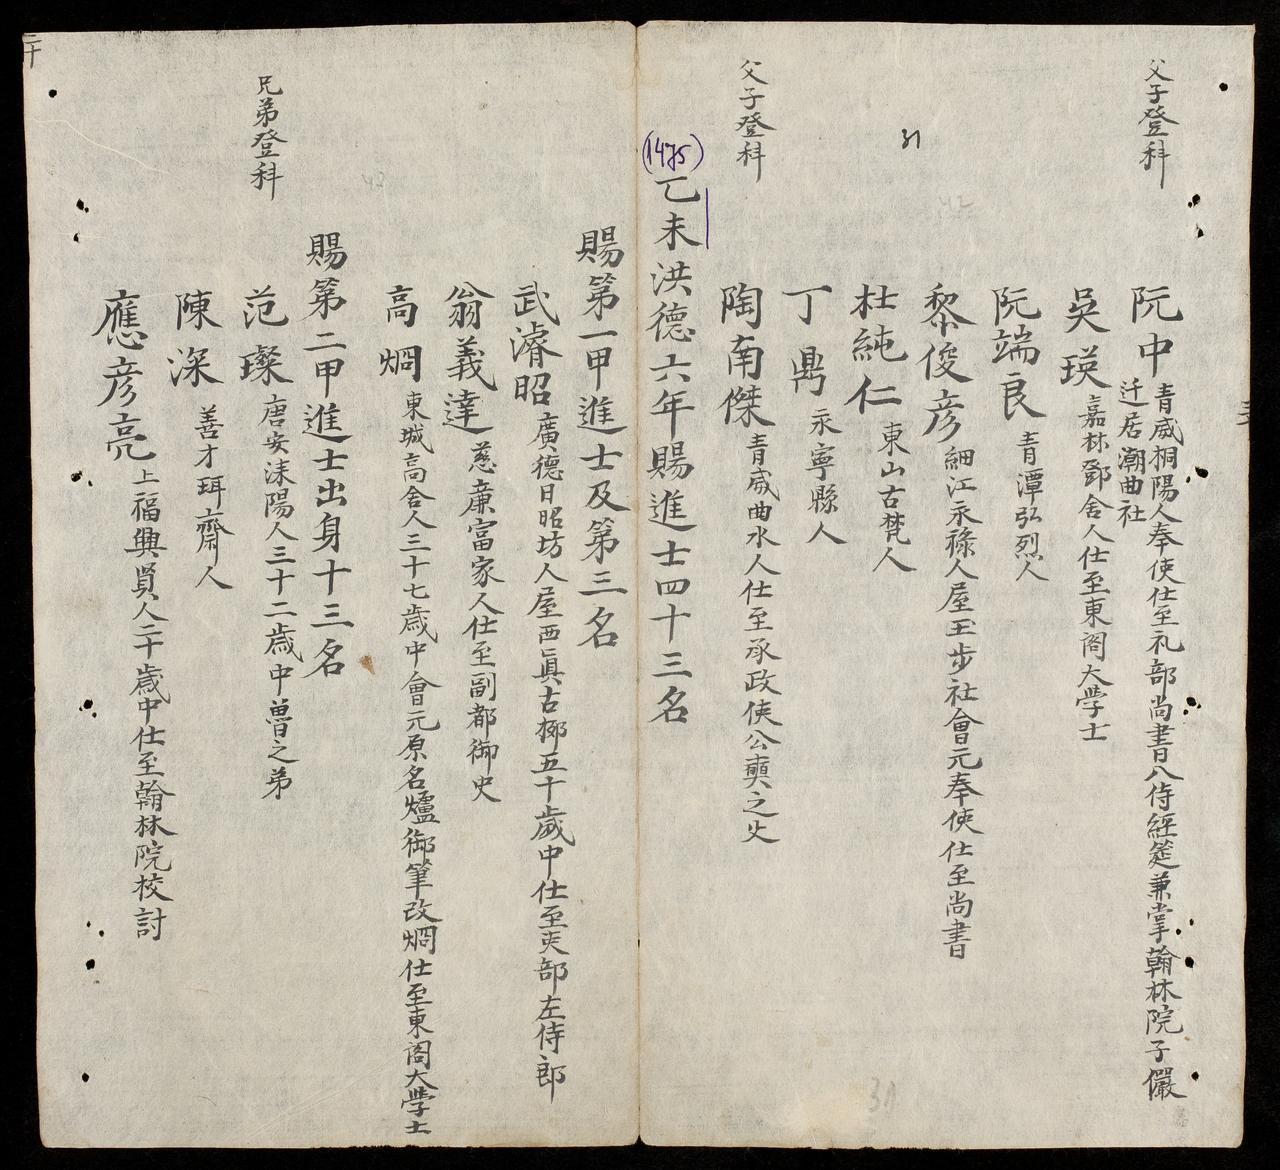 父子登科
阮中青威桐陽人奉使仕至礼部尚書入侍經筵兼掌翰林院子儼
迁居潮曲社
吳瑛嘉林鄧舍人仕至東閣大學士
阮端良青潭弘烈人
31
黎俊彦細江永祿人屋玉步社會元奉使仕至尚書
杜純仁東山古梵人
丁鼎永寧縣人
父子登科
陶南傑青威曲水人仕至承政使公奭之父
(1475)
乙未洪德六年賜進士四十三名
賜第一甲進士及第三名
武濬昭廣德日昭坊人屋西眞古挪五十歲中仕至吏部左侍郎
翁義達慈廉富家人仕至副都御史
高烱東城高舍人三十七歲中會元原名爐御筆改烱仕至東閣大學士
賜第二甲進士出身十三名
兄弟登科
范璨唐安溸陽人三十二歲中曾之弟
陳深善才珥齋人
應彦亮上福興賢人二十歲中仕至翰林院校討
二十